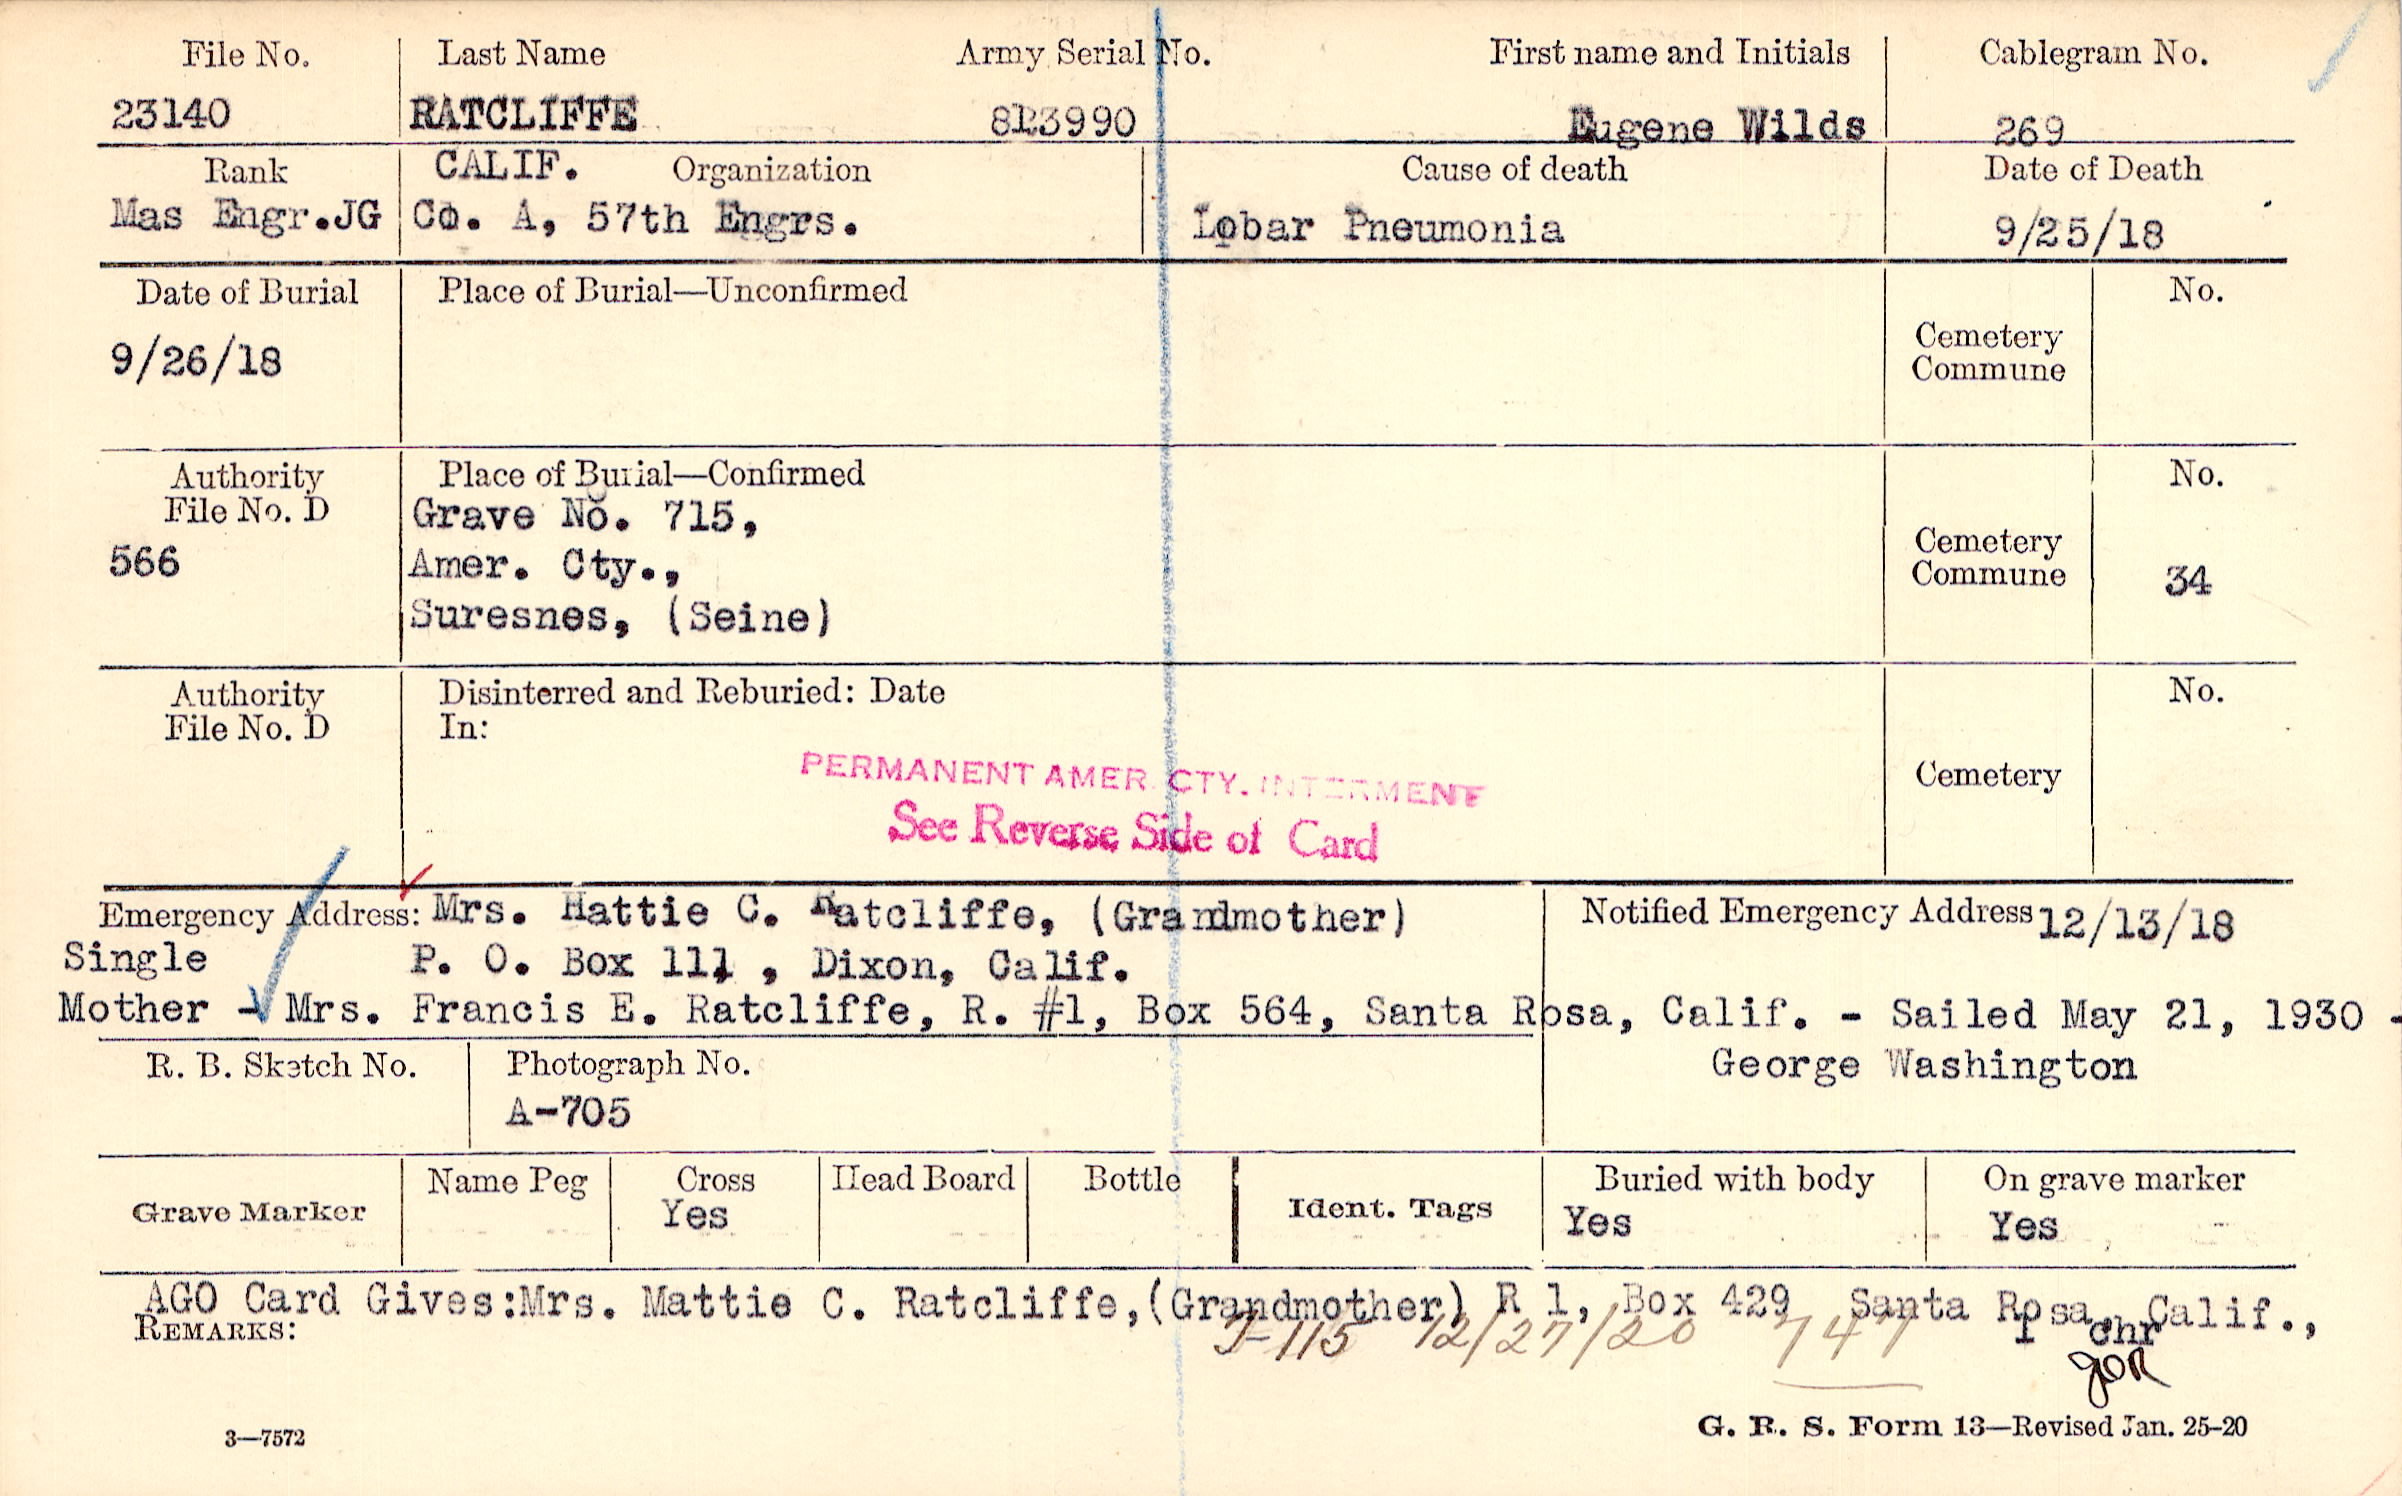 File No. Last Name Army Serial No. First name and Initials Cablegram No.
23140 RATCLIFFE Eugene Wilds 269
Rank CALIF. Organization Cause of death Date of Death
Mas Engr.JG Co. A, 57th Engrs. Lobar Pneumonia 9/25/18
Date of Burial Place of Burial—Unconfirmed No.
Cemetery
Commune
9/26/18
Authority Place of Burial—Confirmed No.
File No. D Grave No. 715,
566 Amer. Cty., Cemetery
Commune 34
Suresnes, (Seine)
Authority Disinterred and Reburied: Date No.
File No. D In:
PERMANENT AMER. CTY. INTERMENT Cemetery
See Reverse Side of Card
Emergency Address: Mrs. Hattie C. Ratcliffe, (Grandmother) Notified Emergency Address 12/13/18
Single P. O. Box 111 , Dixon, Calif.
Mother - Mrs. Francis E. Ratcliffe, R. #1, Box 564, Santa Rosa, Calif. - Sailed May 21, 1930 -
George Washington
R. B. Sketch No. Photograph No.
A-705
Grave Marker Name Peg Cross Head Board Bottle Ident. Tags Buried with body On grave marker
Yes Yes Yes
AGO Card Gives:Mrs. Mattie C. Ratcliffe,(Grandmother) R 1, Box 429 Santa Rosa, Calif.,
REMARKS: 12/27/20 chr
3—7572 G. R. S. Form 13—Revised Jan. 25-20